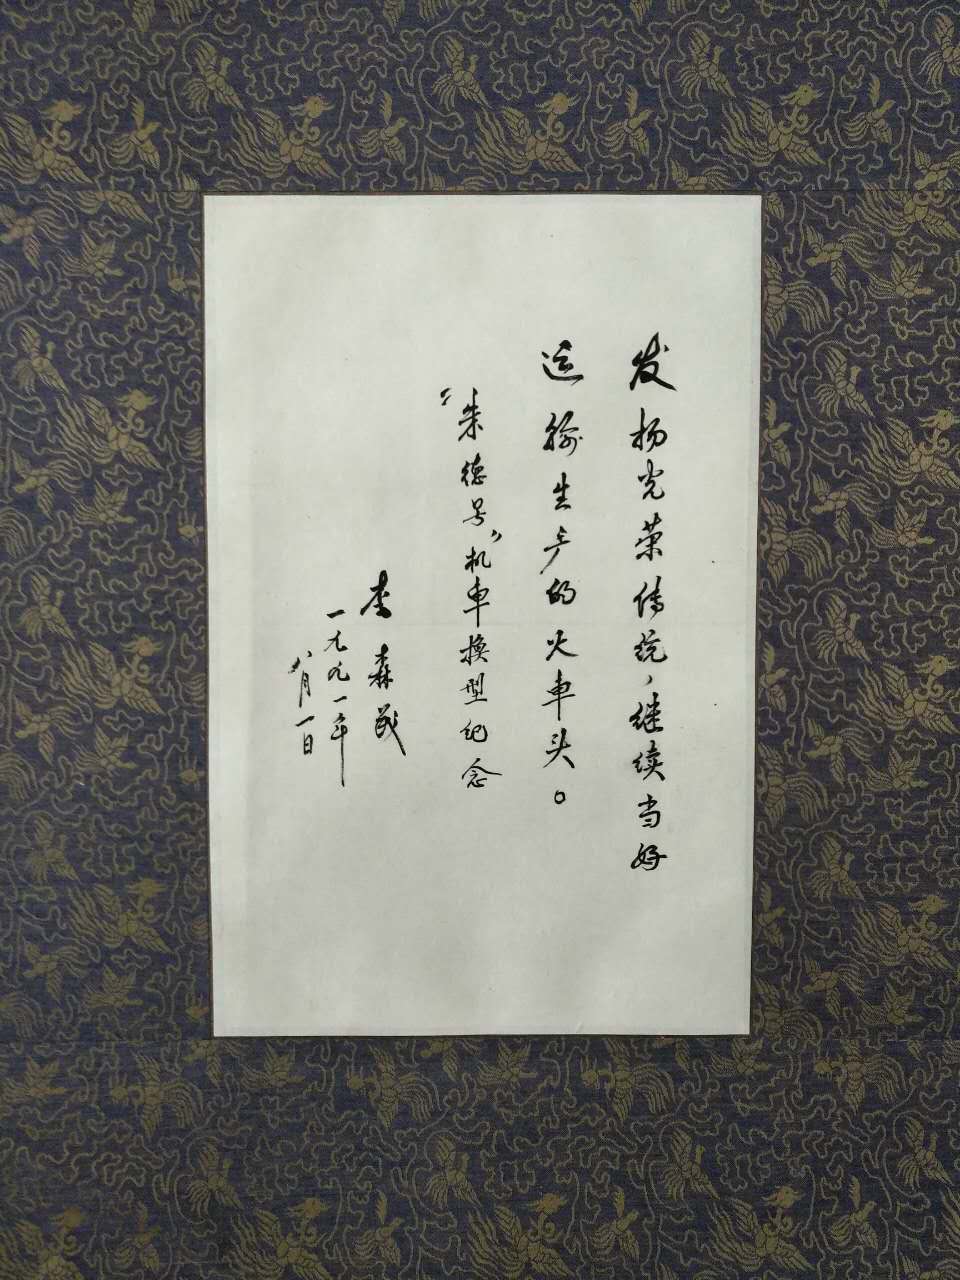 发扬光荣传统，继续当好
运输生产的火车头。
“朱德号”机车换型纪念
李森茂
一九九一年
八月一日